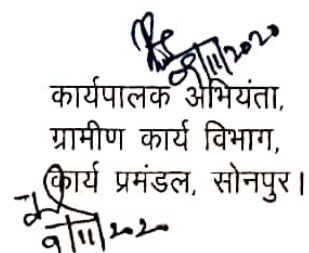 09/11/2020
कार्यपालक अभियंता,
ग्रामीण कार्य विभाग,
कार्य प्रमंडल, सोनपुर।
9/11/2020